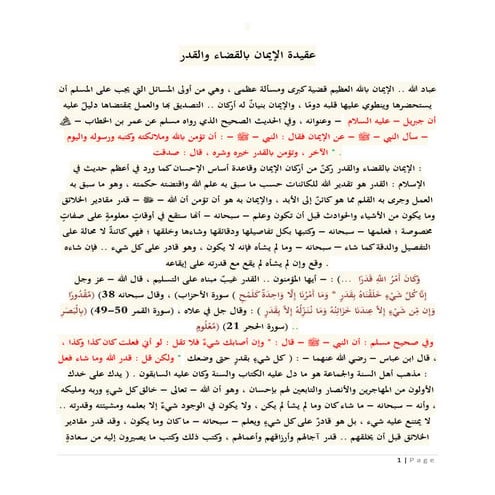 عقيدة الإيمان بالقضاء والقدر
عباد الله .. الإيمان بالله العظيم قضية كبرى ومسألة عظمى ، وهي من أولى المسائل التي يجب على المسلم أن
يستحضرها وينطوي عليها قلبه دومًا ، والإيمان بنيانٌ له أركان .. التصديق بها والعمل بمقتضاها دليل عليه
أن جبريل – عليه السلام – وعنوانه ، وفي الحديث الصحيح الذي رواه مسلم عن عمر بن الخطاب –
– سأل النبي – ﷺ – عن الإيمان فقال : النبي – ﷺ – : أن تؤمن بالله وملائكته وكتبه ورسوله واليوم
. " الآخر ، وتؤمن بالقدر خيره وشره ، قال : صدقت
: الإيمان بالقضاء والقدر ركنٌ من أركان الإيمان وقاعدة أساس الإحسان كما ورد في أعظم حديث في
الإسلام : القدر هو تقدير الله للكائنات حسب ما سبق به علم الله واقتضته حكمته ، وهو ما سبق به
العمل وجرى به القلم مما هو كائنٌ إلى الأبد ، والإيمان به هو أن تؤمن أن الله – ﷺ – قدر مقادير الخلائق
وما يكون من الأشياء والحوادث قبل أن تكون وعلم – سبحانه – أنها ستقع في أوقاتٍ معلومةٍ على صفاتٍ
مخصوصة ؛ فعلمها – سبحانه – وكتبها بكل تفاصيلها ودقائقها وشاءها وخلقها ؛ فهي كائنةٌ لا محالة على
التفصيل والدقة كما شاء – سبحانه – وما لم يشأه فإنه لا يكون ، وهو قادر على كل شيء .. فإن شاءه
. وقع وإن لم يشأه لم يقع مع قدرته على إيقاعه
وَكَانَ أَمْرُ اللَّهِ قَدَرًا ...) : – أيها المؤمنون .. القدر غيبٌ مبناه على التسليم ، قال الله – عز وجل
إِنَّا كُلَّ شَيْءٍ خَلَقْنَاهُ بِقَدَرٍ * وَمَا أَمْرُنَا إِلَّا وَاحِدَةٌ كَلَمْحٍ ) (سورة الأحزاب) ، وقال سبحانه 38) (مَّقْدُورًا
وَإِن مِّن شَيْءٍ إِلَّا عِندَنَا خَزَائِنُهُ وَمَا نُنَزِّلُهُ إِلَّا بِقَدَرٍ ) : وقال جل في علاه ، (سورة القمر 50–49) (بِالْبَصَرِ
.. (سورة الحجر 21) (مَّعْلُومٍ
وفي صحيح مسلم : أن النبي – ﷺ – قال : " وإن أصابك شيءٌ فلا تقل : لو أني فعلت كان كذا وكذا ،
، قال ابن عباس – رضي الله عنهما – : ( كل شيءٍ بقدرٍ حتى وضعك " ولكن قل : قدر الله وما شاء فعل
: مذهب أهل السنة والجماعة هو ما دل عليه الكتاب والسنة وكان عليه السابقون . ( يدك على خدك
الأولون من المهاجرين والأنصار والتابعين لهم بإحسان ، وهو أن الله – تعالى – خالق كل شيءٍ وربه ومليكه
، وأنه – سبحانه – ما شاء كان وما لم يشأ لم يكن ، ولا يكون في الوجود شيءٌ إلا بعلمه ومشيئته وقدرته ..
لا يمتنع عليه شيء ، بل هو قادرٌ على كل شيءٍ ويعلم – سبحانه – ما كان وما يكون ، وقد قدر مقادير
الخلائق قبل أن يخلقهم .. قدر آجالهم وأرزاقهم وأعمالهم ، وكتب ذلك وكتب ما يصيرون إليه من سعادةٍ
1 | Page